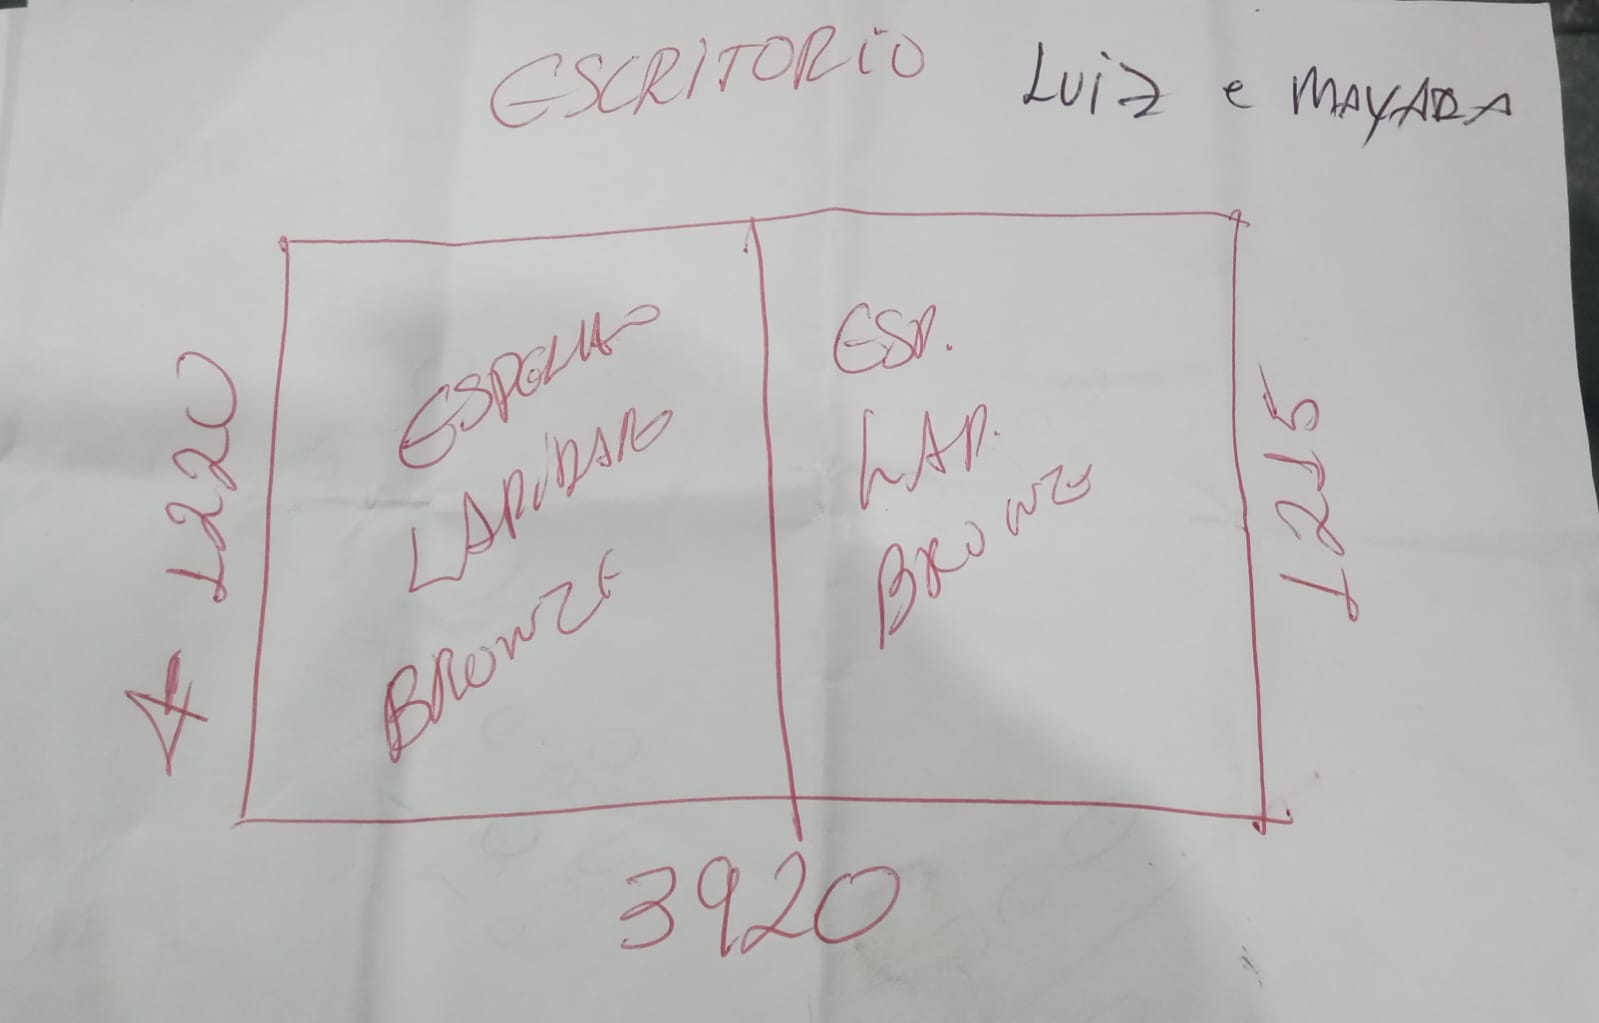 ESCRITORIO LUIZ e MAYARA
ESPELHO
LAPIDADO
BRONZE
ESP.
LAP.
BRONZE
1220
1215
3920